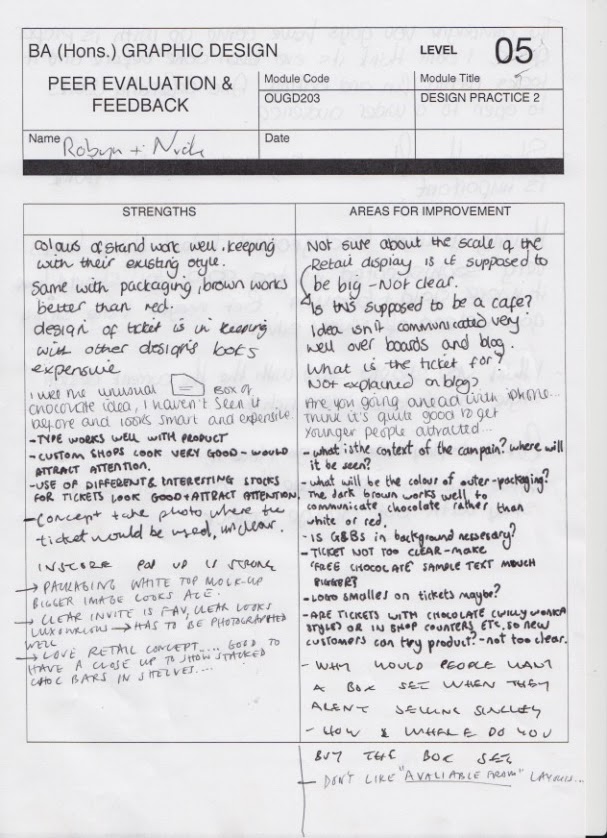 BA (Hons.) GRAPHIC DESIGN
LEVEL 05
PEER EVALUATION &
FEEDBACK
Module Code
Module Title
OUGD203
DESIGN PRACTICE 2
Name Robyn +
Date
STRENGTHS
colours of stand work well. keeping
with their existing style.
Same with packaging, brown works
better than red.
design of ticket is in keeping
with other design's looks
expensive
I like the unusual box of
chocolate idea, I haven't seen it
before and looks smart and expensive
- TYPE WORKS WELL WITH PRODUCT
- CUSTOM SHOPS LOOK VERY GOOD - WOULD
ATTRACT ATTENTION.
- USE OF DIFFERENT & INTERESTING STOCKS
FOR TICKETS LOOK GOOD + ATTRACT ATTENTION.
- Concept take photo where the
ticket would be used, unclear.
INSTORE POP UP IS STRONG
→ PACKAGING WHITE TOP MOCK-UP
BIGGER IMAGE LOOKS ACE.
→ CLEAR INVITE IS FAV, CLEAR LOOKS
LUXURIOUS → HAS TO BE PHOTOGRAPHED
WELL
→ LOVE RETAIL CONCEPT.... GOOD TO
HAVE A CLOSE UP TO SHOW STACKED
CHOC BARS IN SHELVES....
AREAS FOR IMPROVEMENT
Not sure about the scale of the
Retail display is it supposed to
be big - Not clear.
Is this supposed to be a cafe?
Idea isn't communicated very
well over boards and blog.
What is the ticket for?
Not explained on blog?
Are you going ahead with iphone...
Think it's quite good to get
younger people attracted...
- what is the context of the campain? where will
it be seen?
- what will be the colour of outer-packaging?
The dark brown works well to
communicate chocolate rather than
white or red.
- IS G&BS in background nessesary?
- TICKET NOT TOO CLEAR - MAKE
'FREE CHOCOLATE' SAMPLE TEXT MUCH
BIGGER?
- LOGO smaller on tickets maybe?
- ARE TICKETS WITH CHOCOLATE (WILLY WONKA
STYLE) OR IN SHOP COUNTERS ETC. SO new
customers can try product? - not too clear.
- WHY WOULD PEOPLE WANT
A BOX SET WHEN THEY
ARENT SELLING SINGLEY
- HOW & WHERE DO YOU
BUY THE BOX SET
- DON'T LIKE "AVALIABLE FROM" LAYOUT...